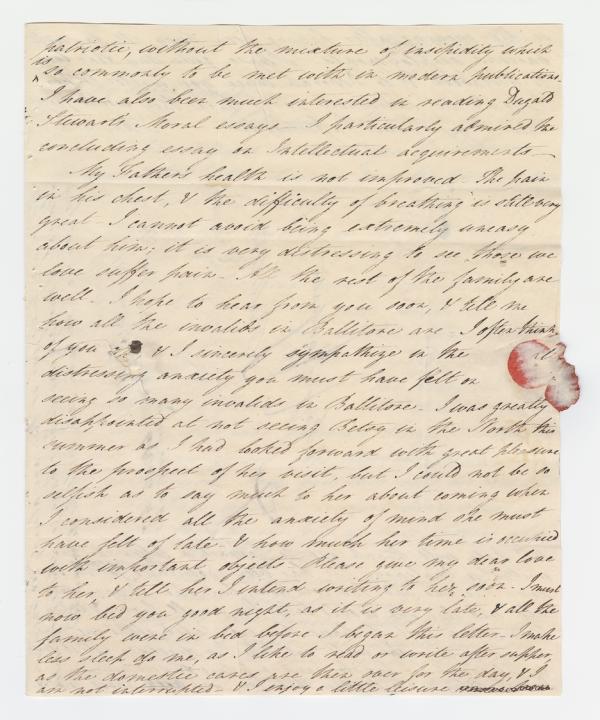 patriotic, without the mixture of insipidity which
is
so commonly to be met with in modern publications
I have also been much interested in reading Dugald
Stewart's Moral essays - I particularly admired the
concluding essay on Intellectual acquirements -
My Father's health is not improved - The pain
in his chest, & the difficulty of breathing is still very
great - I cannot avoid being extremely uneasy
about him; it is very distressing to see those we
love suffer pain - All the rest of the family are
well - I hope to hear from you soon, & tell me
how all the invalids in Ballitore are - I often think
of you & I sincerely sympathize in the
distressing anxiety you must have felt on
seeing so many invalids in Ballitore - I was greatly
disappointed at not seeing Betsy in the North this
summer as I had looked forward with great pleasure
to the prospect of her visit, but I could not be so
selfish as to say much to her about coming when
I considered all the anxiety of mind she must
have felt of late - & how much her time is occupied
with important objects - Please give my dear love
to her, & tell her I intend writing to her soon - I must
now bid you good night, as it is very late, & all the
family were in bed before I began this letter - I make
less sleep do me, as I like to read or write after supper
as the domestic cares are then over for the day, & I
am not interrupted - & I enjoy a little leisure